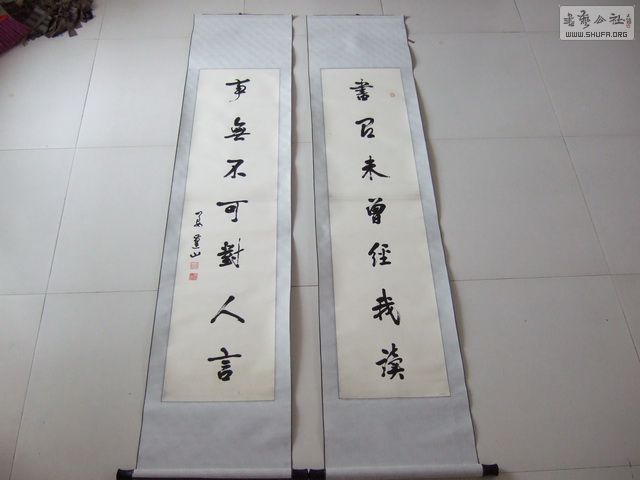 書有未曾經我讀
事無不可對人言
山
书艺公社
WWW.SHUFA.ORG